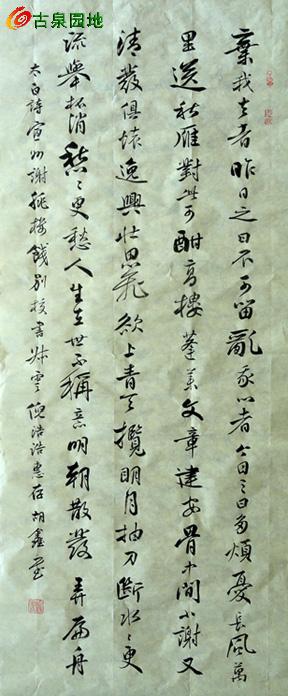 古泉园地
棄我去者昨日之日不可留亂我心者今日之日多煩憂長風萬
里送秋雁對此可酣高樓蓬萊文章建安骨中間小謝又
清發俱懷逸興壯思飛欲上青天攬明月抽刀斷水〻更
流舉杯消愁〻更愁人生在世不稱意明朝散發弄扁舟
太白詩宣州謝朓樓餞別校書叔雲 倪浩浩惠存 胡鑫書